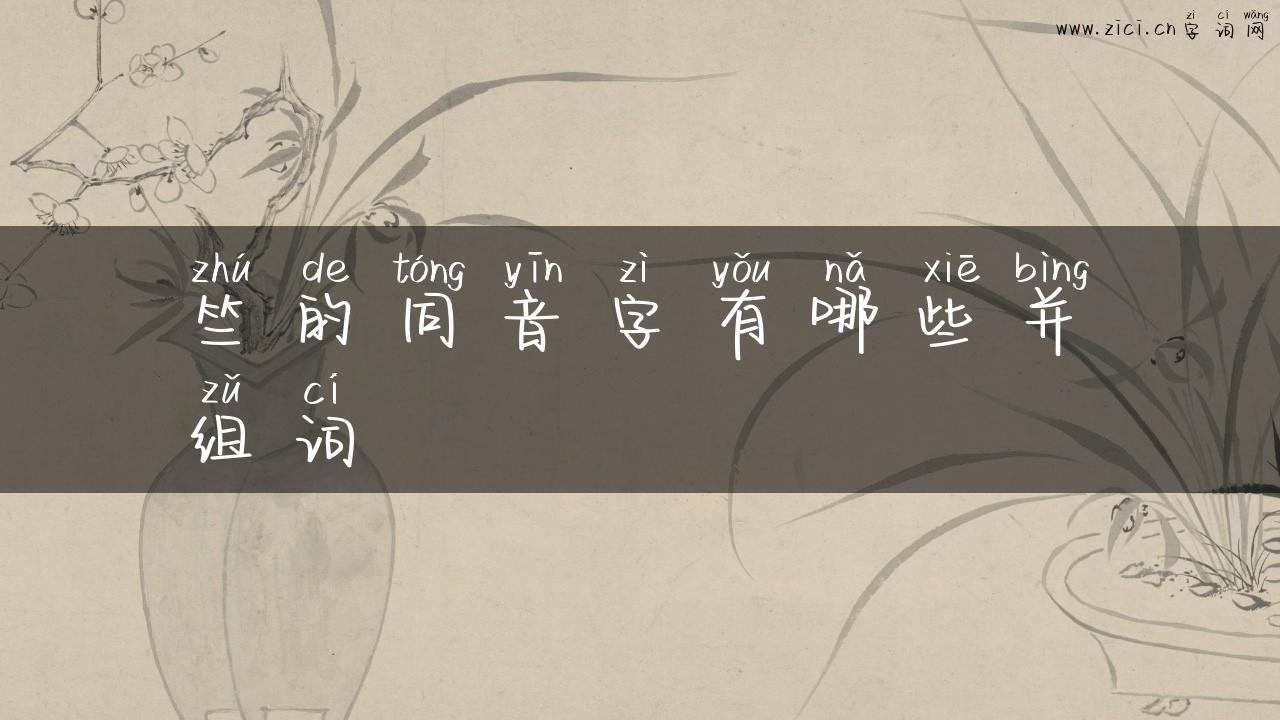 zì cí wǎng
www.zici.cn字词网
zhú de tóng yīn zì yǒu nǎ xiē bìng
竺的同音字有哪些并
zǔ cí
组词